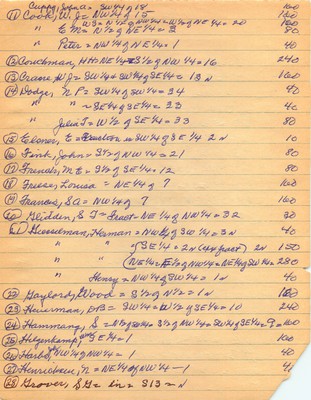 Cuppy, John = SW¼ of 18 160
(11) Cook, W. J = NW¼ of 15 160
" W½ = N½ of NW¼ = W½ of NE¼ = 20 160
" E M = N½ of NE¼ = 3 80
" Peter = NW¼ of NE¼ = 1 40
(12) Couchman, HH = NE¼ = S½ of NW¼ = 16 240
(13) Crane, W J = SW¼ = SW¼ of SE¼ = 13 N 160
(14) Dodge, N P = SW¼ of SW¼ = 34 40
" " ~ SE¼ of SE¼ = 33 40
" Julia T = W½ of SE¼ = 33 80
(15) Elsner, E = SW¼ of SE¼ 2 N 10
(16) Fink, John = S½ of NW¼ = 21 80
(17) French, M E = S½ of SE¼ = 12 80
(18) Freise, Louisa = NE¼ of 7 160
(19) Francis, S A = NW¼ of 7 160
(20) Glidden, S T = Fract = NE¼ of NW¼ = 32 30
(21) Giesselman, Herman = NW¼ of SW¼ = 3 N 40
" " " SE¼ = 2 N (44 fract) 2 N 150
" " (NE¼ = E½ of NW¼ = NE¼ of SE¼ = 280
" Henry = NW¼ of SW¼ = 1 N 40
(22) Gaylord, Wood = S½ of N½ = 1 N 160
(23) Heuerman, = SW¼ = W½ of SE¼ = 10 240
(24) Hammang, S = N½ of SW¼ = S½ of NW¼ = SW¼ of SE¼ = 9 = 160
(25) Hilgenkamp, SE¼ = 1 160
(26) Harbo NW¼ of NW¼ = 1 40
(27) Henrichsen, N = NE¼ of NW¼ — 1 41
(28) Grover, S G = in = S 13 = N